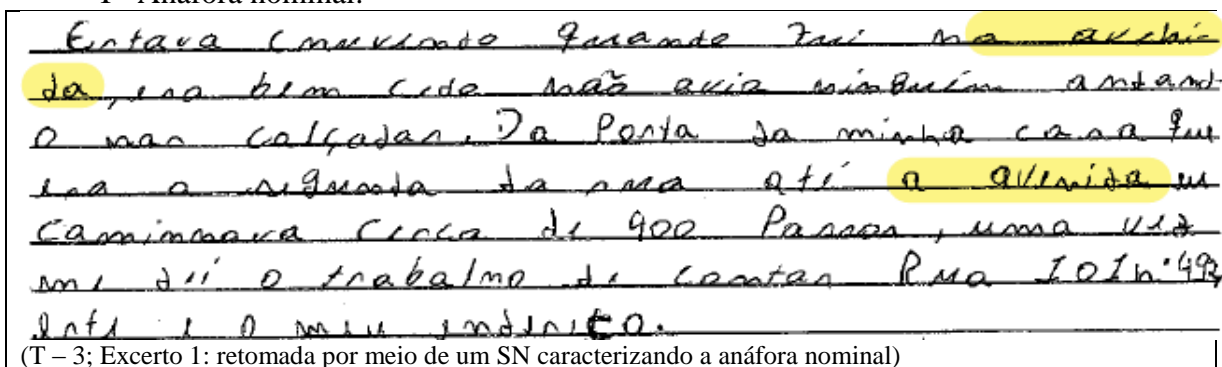 1 - Anáfora nominal:
Estava chuvendo quando fui na avehi
da, era bem cedo não avia ninguém andand
o nas calçadas. Da Porta da minha casa que
era a segunda da rua até a avenida eu
caminhava cerca de 900 Passos, uma vez
me dii o trabalho de contar Rua 101 n° 493
este e o meu endereço.
(T – 3; Excerto 1: retomada por meio de um SN caracterizando a anáfora nominal)